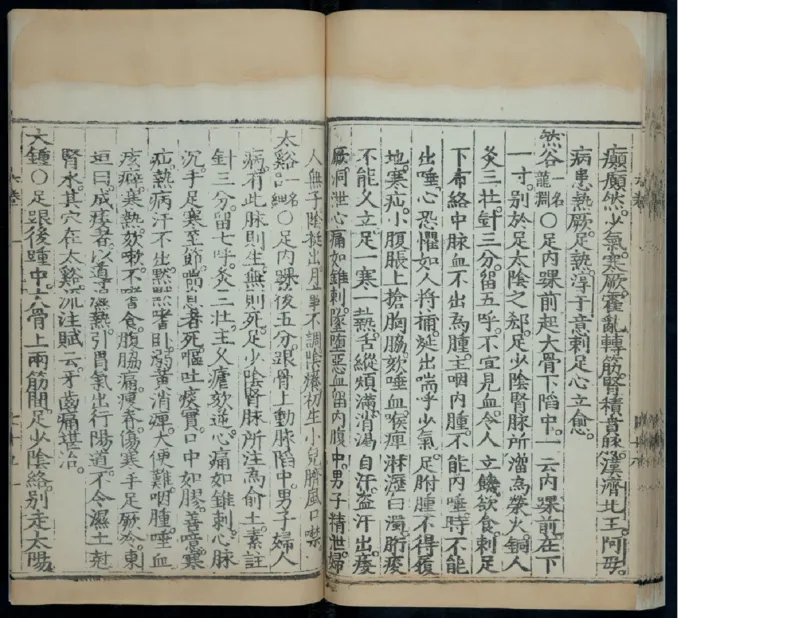 癲顚然少氣寒厥霍亂轉筋腎積賁豚濟北王阿母
病患熱厥足熱淳于意刺足心立愈
然谷一名龍淵○足內踝前起大骨下陷中一云內踝前在下
一寸別於足太陰之郄足少陰腎脉所溜為滎火銅人
灸三壯針三分留五呼不宜見血令人立饑欲食刺足
下布絡中脉血不出為腫主咽內腫不能內唾時不能
出唾心恐懼如人將捕涎出喘呼少氣足胕腫不得履
地寒疝小腹脹上搶胸脇欬唾血喉痺淋瀝白濁胻痠
不能久立足一寒一熱舌縱煩滿消渴自汗盜汗出痿
厥洞泄心痛如錐刺墜墮惡血留內腹中男子精泄婦
人無子陰挺出月事不調陰癢初生小兒臍風口噤
太谿一名○足內踝後五分跟骨上動脉陷中男子婦人
病有此脉則生無則死足少陰腎脉所注為俞土素註
針三分留七呼灸三壯主久瘧欬逆心痛如錐刺心脉
沉手足寒至節喘息者死嘔吐痰實口中如膠善噫寒
疝熱病汗不出默默嗜卧溺黃消癉大便難咽腫唾血
痃癖寒熱欬嗽不嗜食腹脇痛瘦脊傷寒手足厥冷東
垣曰成痿者以導濕熱引胃氣出行陽道不令濕土尅
腎水其穴在太谿流注賦云牙齒痛堪治
大鍾○足跟後踵中大骨上兩筋間足少陰絡別走太陽